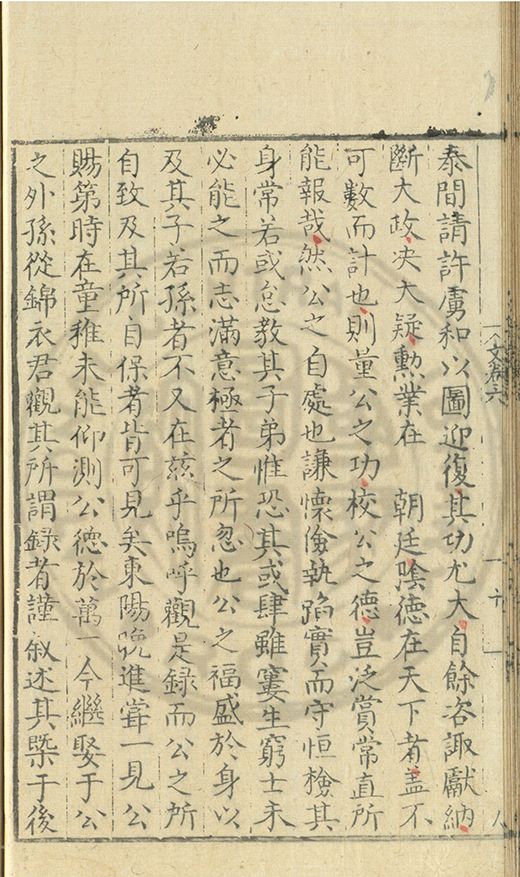 泰間請許虜和以圖迎復其功尤大自餘咨諏獻納
斷大政决大疑勲業在　朝廷隂德在天下者盖不
可數而計也則量公之功校公之德豈泛賞常直所
能報哉然公之自處也謙懷儉執蹈實而守恒檢其
身常若或怠教其子弟惟恐其或肆雖寠生窮士未
必能之而志滿意極者之所忽也公之福盛於身以
及其子若孫者不又在兹乎嗚呼觀是録而公之所
自致及其所自保者皆可見矣東陽晩進甞一見公
賜第時在童稚未能仰測公德於萬一今繼娶于公
之外孫從錦衣君觀其所謂録者謹叙述其槩于後